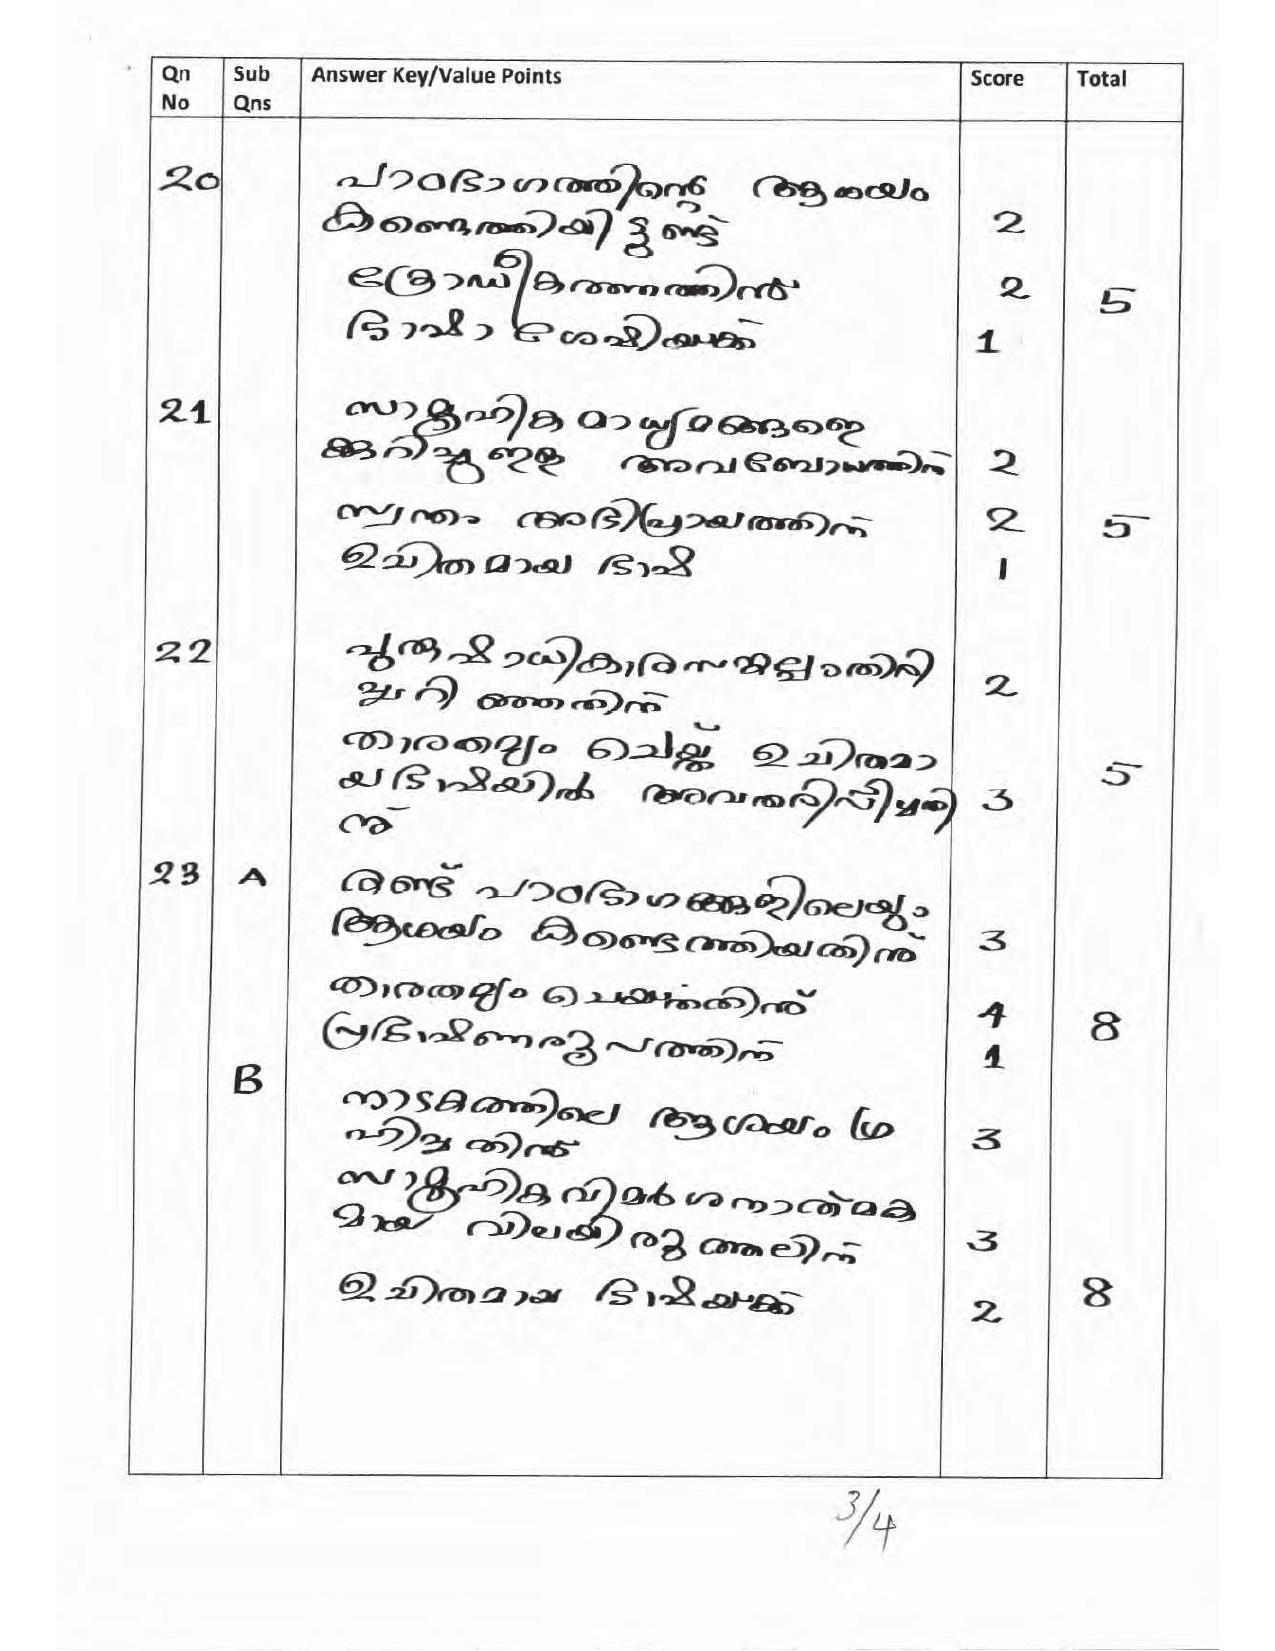 Qn No Sub Qns Answer Key/Value Points Score Total
20 പാഠഭാഗത്തിന്റെ ആശയം
കണ്ടെത്തിയിട്ടുണ്ട് 2
ക്രോഡീകരണത്തിന് 2 5
ഭാഷാ ശേഷിയ്ക്ക് 1
21 സാമൂഹിക മാധ്യമങ്ങളെ
ക്കുറിച്ചുള്ള അവബോധത്തിന് 2
സ്വന്തം അഭിപ്രായത്തിന് 2 5
ഉചിതമായ ഭാഷ 1
22 പുരുഷാധികാരസന്മല്ലാതിരി
2
താരതമ്യം ചെയ്ത് ഉചിതമാ
യ ഭാഷയിൽ അവതരിപ്പിച്ചതി 3 5
ന്
23 A രണ്ട് പാഠഭാഗങ്ങളിലെയും
ആശയം കണ്ടെത്തിയതിന് 3
താരതമ്യം ചെയ്തതിന് 4 8
പ്രഭാഷണരൂപത്തിന് 1
B നാടകത്തിലെ ആശയം ഗ്ര
ഹിച്ചതിന് 3
സാമൂഹികവിമർശനാത്മക
മായ വിലയിരുത്തലിന് 3
ഉചിതമായ ഭാഷയ്ക്ക് 2 8
3/4